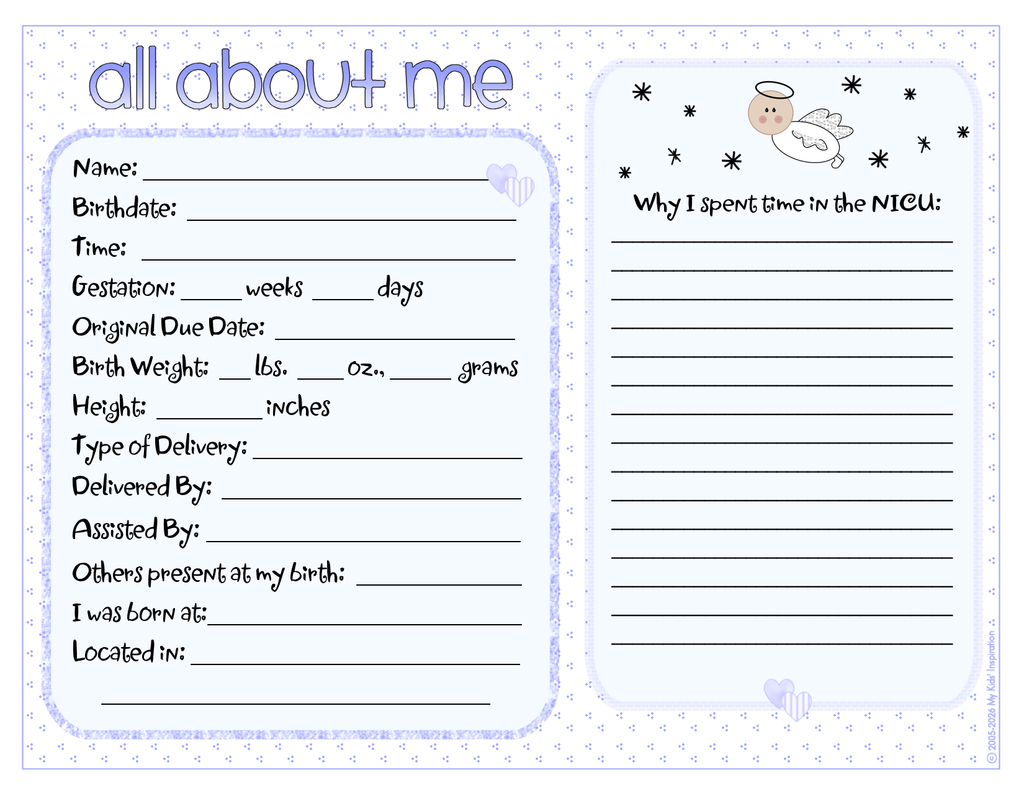 all about me
Name:
Birthdate:
Time:
Gestation: _____ weeks _____ days
Original Due Date:
Birth Weight: ___ lbs. ____ oz., _____ grams
Height: _________ inches
Type of Delivery:
Delivered By:
Assisted By:
Others present at my birth:
I was born at:
Located in:
Why I spent time in the NICU:
© 2005-2026 My Kids' Inspiration